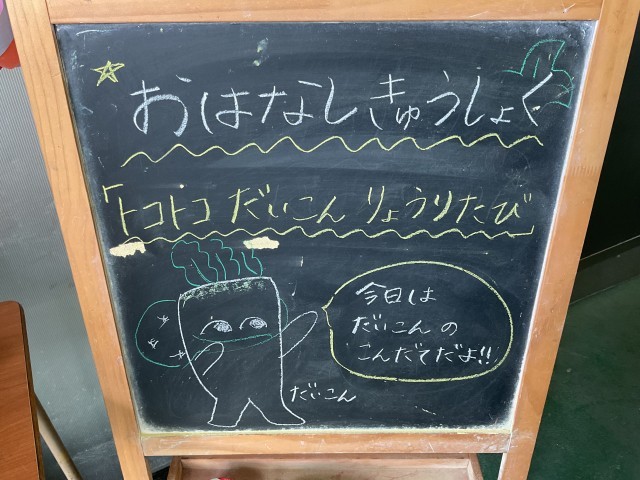 おはなしきゅうしょく
「トコトコ だいこん りょうりたび」
今日は
だいこんの
こんだてだよ!!
だいこん